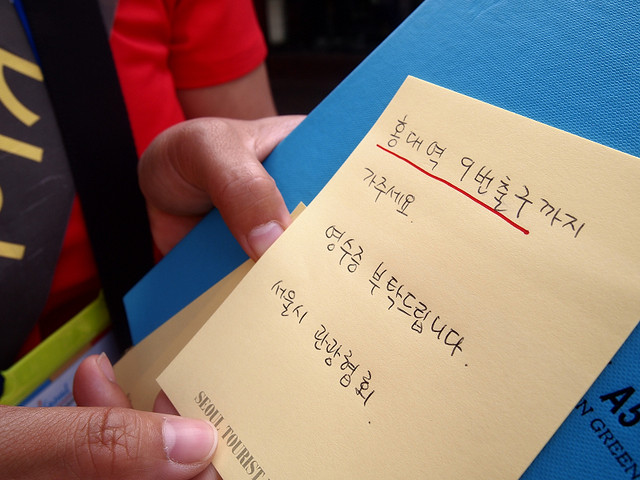 홍대역 9번출구까지
가주세요.
영수증 부탁드립니다.
서울시 관광협회
SEOUL TOURIST
A5
N GREEN